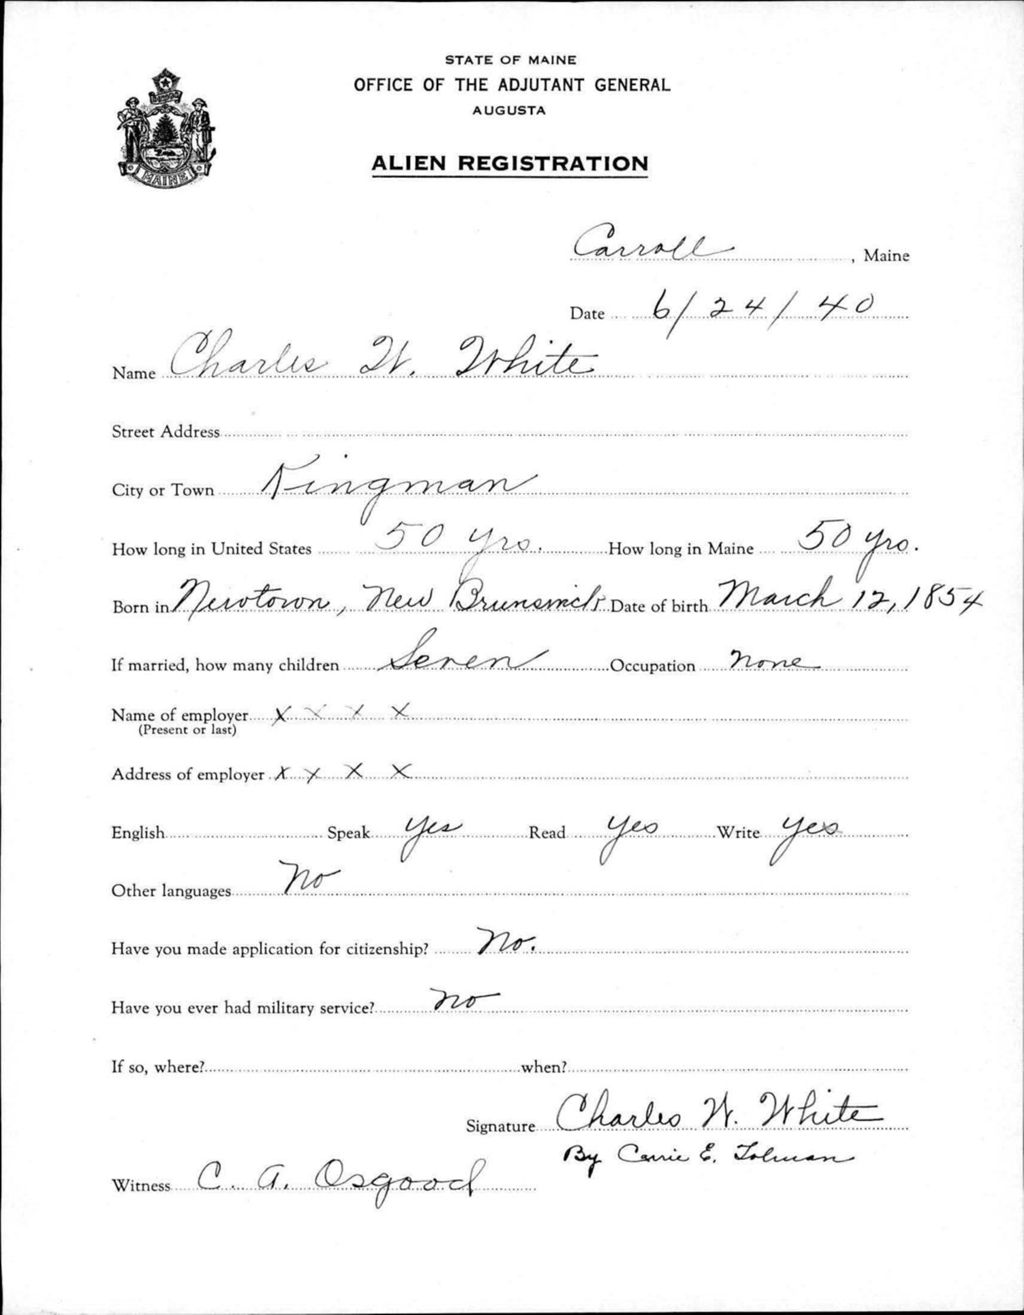 STATE OF MAINE
OFFICE OF THE ADJUTANT GENERAL
AUGUSTA
ALIEN REGISTRATION
MAINE
Carroll, Maine
Date 6/24/40
Name Charles W. White
Street Address
City or Town Kingman
How long in United States 50 yrs. How long in Maine 50 yrs.
Born in Newtown, New Brunswick Date of birth March 12, 1854
If married, how many children Seven Occupation None
Name of employer X X X X
(Present or last)
Address of employer X X X X
English Speak Yes Read Yes Write Yes
Other languages No
Have you made application for citizenship? No.
Have you ever had military service? No
If so, where? when?
Signature Charles W. White
By Carrie E. Tolman
Witness C. A. Osgood